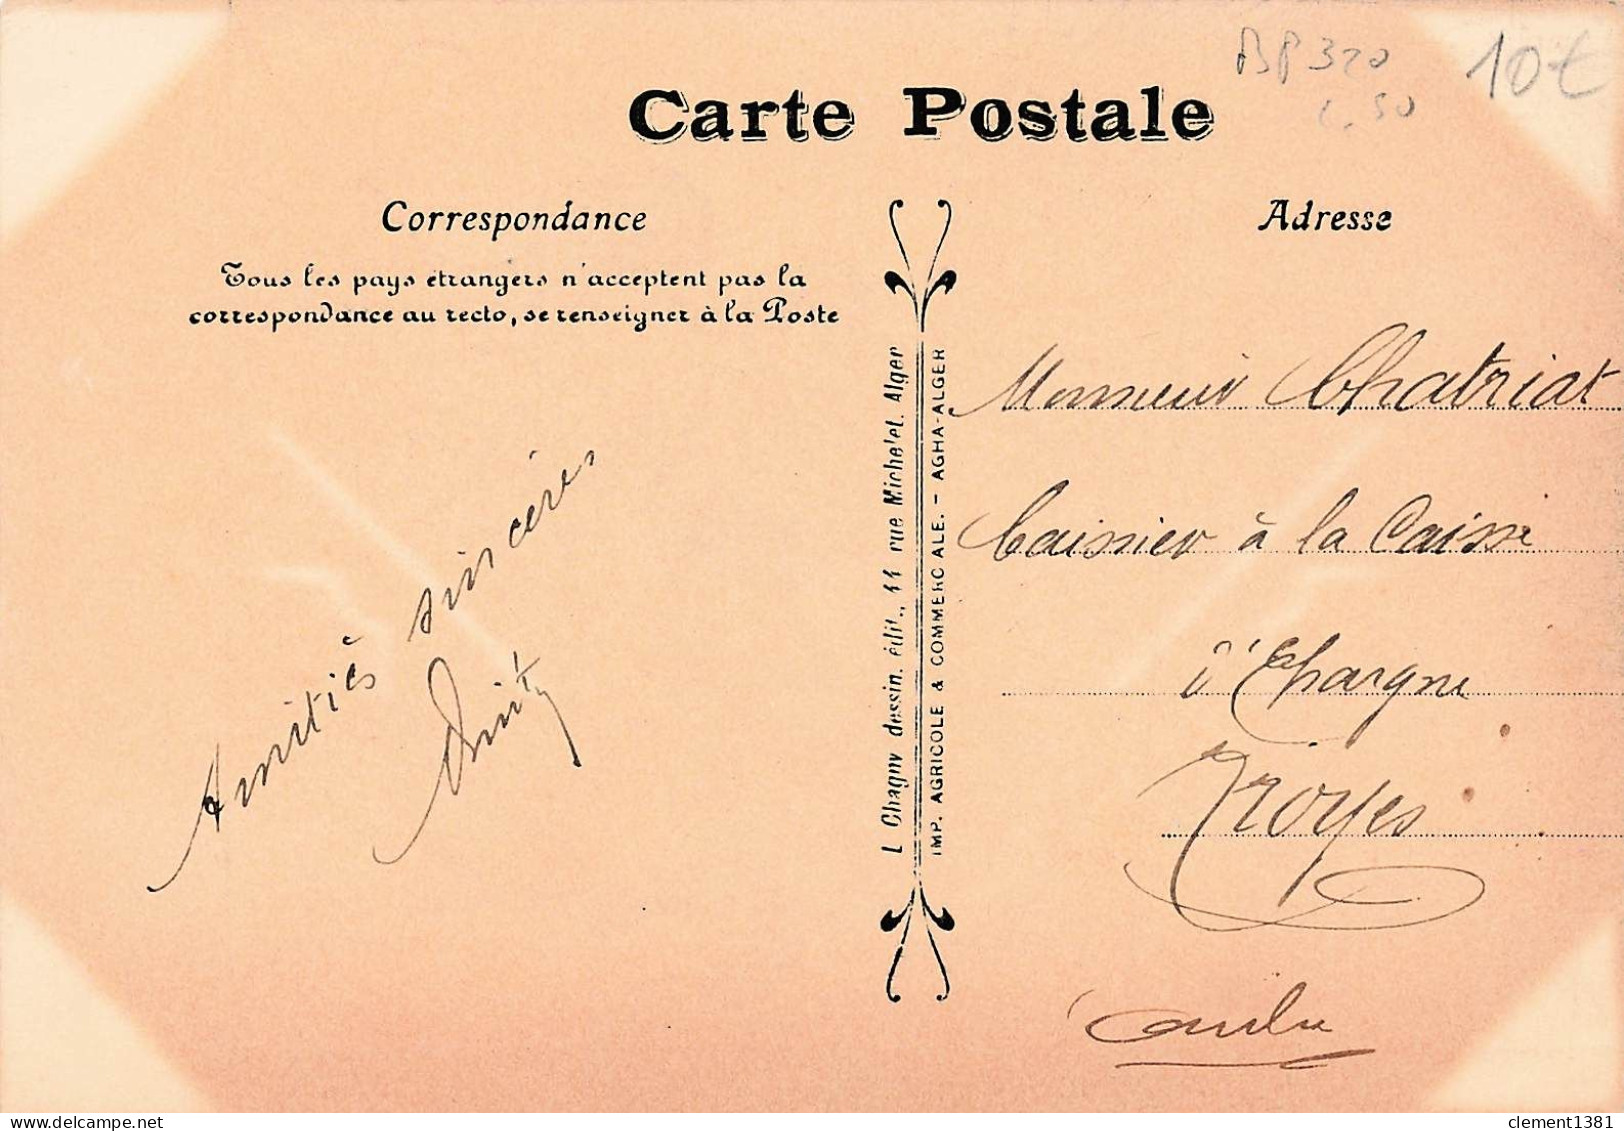 BP 320
10€
50
Carte Postale
Correspondance
Tous les pays étrangers n'acceptent pas la
correspondance au recto, se renseigner à la Poste
Amitiés sincères
L Chagny dessin. édit., 11 rue Michelet. Alger
IMP. AGRICOLE & COMMERCIALE. - AGHA-ALGER
Adresse
Monsieur Chatriat
Caissier à la Caisse
d'Epargne
Troyes
Aube
clement1381